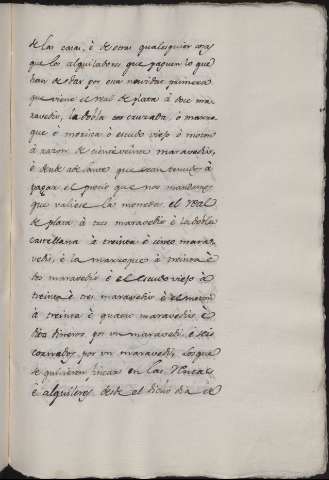 de las casas, è de otras qualesquier cosas
que los alquiladores que paguen lo que
han de dar por esta navidad primera
que viene el real de plata à doce ma-
ravedis, la dobla cruzada, ò marro-
que ò morisca ò escudo viejo ò moton
à razon de ciento veinte maravedis,
è dende adelante que sean tenudos à
pagar el precio que nos mandamos
que valiese la moneda: el real
de plata à tres maravedis è la dobla
castellana à treinta è cinco mara-
vedis, è la marroque à treinta è
tres maravedis è el escudo viejo à
treinta è tres maravedis è el moton
à treinta è quatro maravedis è
diez dineros por un maravedi, è seis
cornados por un maravedi, los que
se quisieren fincar en las rentas
è alquileres desde el dicho dia de